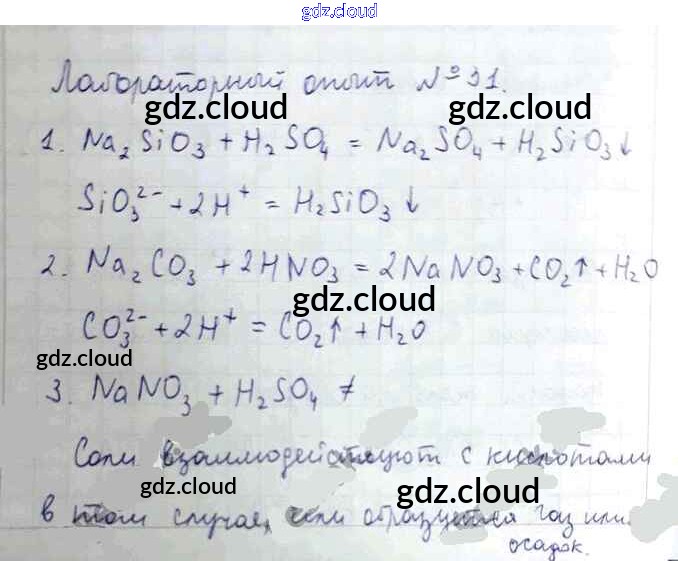 gdz.cloud
Лабораторный опыт № 31.
gdz.cloud gdz.cloud
1. Na₂SiO₃ + H₂SO₄ = Na₂SO₄ + H₂SiO₃↓
SiO₃²⁻ + 2H⁺ = H₂SiO₃↓
2. Na₂CO₃ + 2HNO₃ = 2NaNO₃ + CO₂↑ + H₂O
gdz.cloud
CO₃²⁻ + 2H⁺ = CO₂↑ + H₂O
gdz.cloud
3. NaNO₃ + H₂SO₄ ≠
Соли взаимодействуют с кислотами
gdz.cloud gdz.cloud
в том случае, если образуется газ или
осадок.